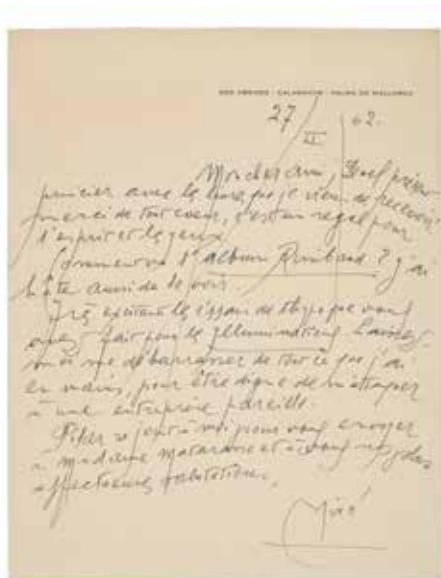 SON ABRINES - CALAMAYOR - PALMA DE MALLORCA
27/II 62.
Mon cher ami, quel présent
princier avec le livre que je viens de recevoir
merci de tout coeur, c'est un régal pour
l'esprit et les yeux.
Comment va l'album Rimbaud ? j'ai
hâte aussi de le voir
Très excitant les essais de typo que vous
avez fait pour les Illuminations. Laissez-
moi me débarrasser de tout ce que j'ai
en mains, pour être digne de m'attaquer
à une entreprise pareille.
Pilar se joint à moi pour vous envoyer
à madame Matarasso et à vous nos plus
affectueuses salutations.
Miró